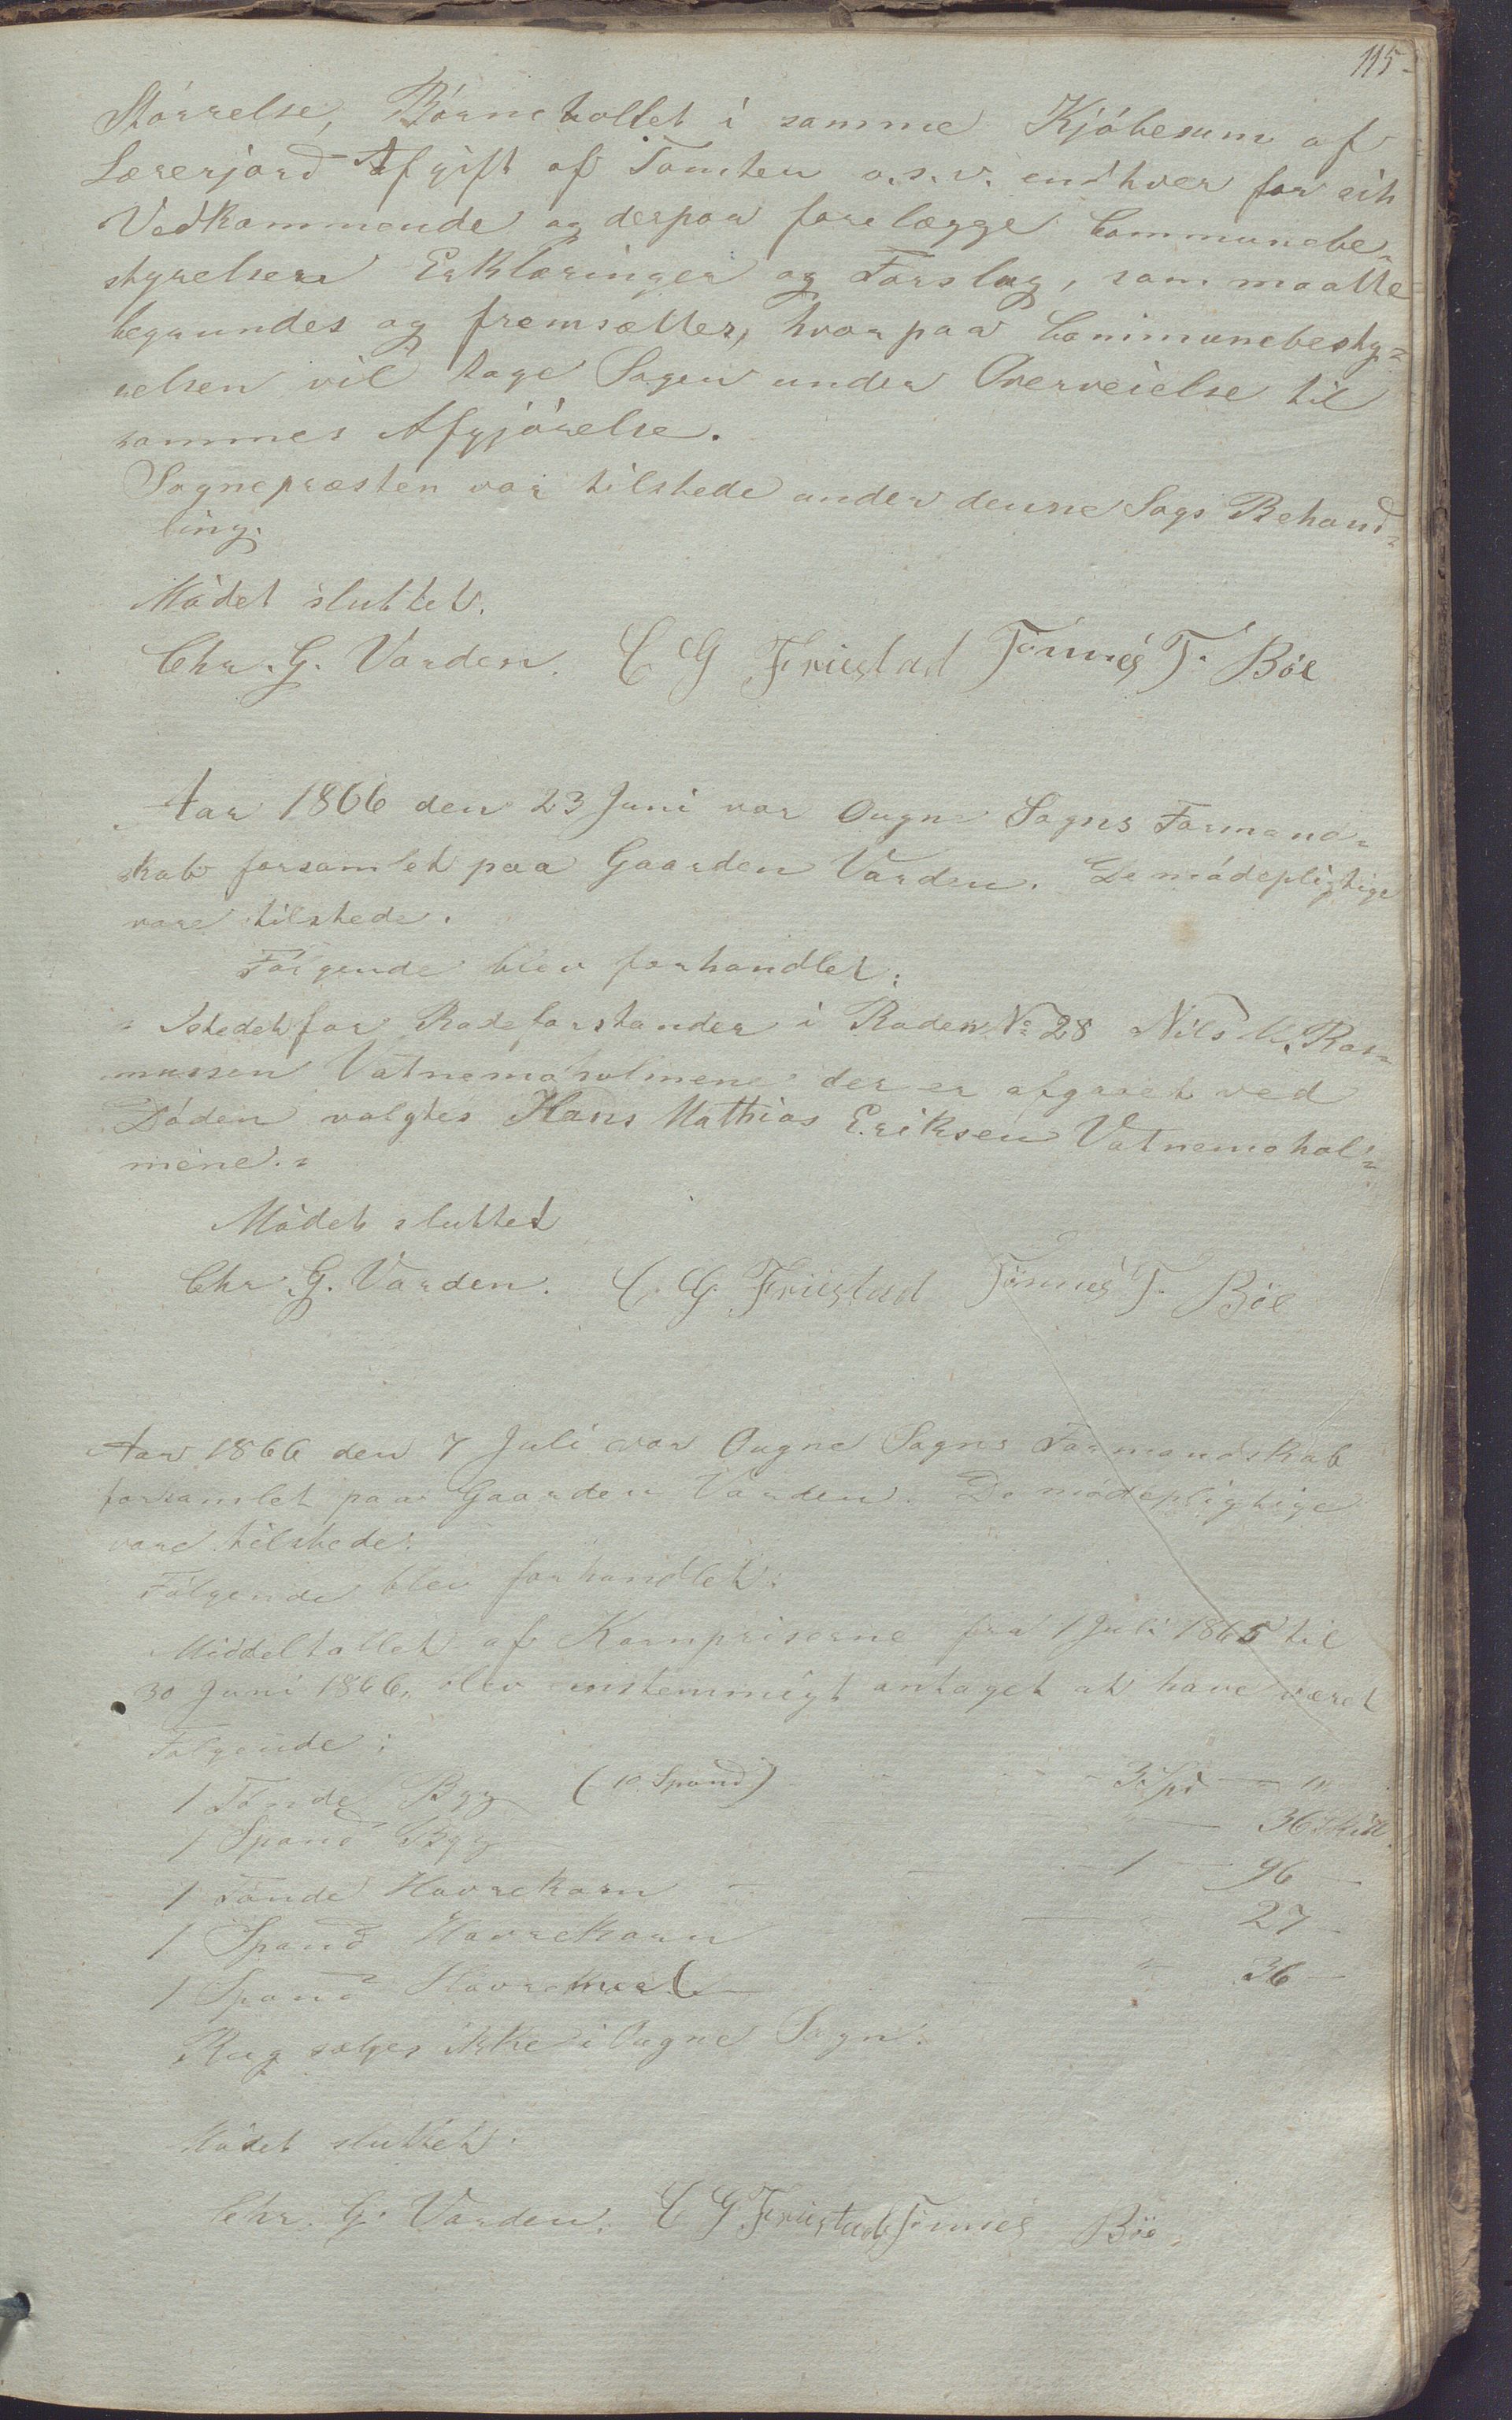 115
Størrelse, Børnetallet i samme Kjøbesum af
Lærerjord Afgift af Tomten o.s.v. enhver for sit
Vedkommende og derpaa forelægge Communebe-
styrelsen Erklæringer og Forslag, som maatte
begrundes og fremsættes, hvorpaa Communebesty-
relsen vil tage Sagen under Overveielse til
sammes Afgjørelse.
Sognepræsten var tilstede under denne Sags Behand-
ling.
Mødet sluttet.
Chr. G. Varden. C G Friestad Tønnes T. Böe
Aar 1866 den 23 Juni var Ougne Sogns Formand-
skab forsamlet paa Gaarden Varden. De mødepligtige
vare tilstede.
Følgende blev forhandlet:
Istedetfor Rodeforstander i Roden No 28 Nils M. Ras-
mussen Vatnemoholmene der er afgaaet ved
Døden valgtes Hans Mathias Eriksen Vatnemohol-
mene.
Mødet sluttet
Chr. G. Varden. C. G. Friestad Tønnes T. Böe
Aar 1866 den 7 Juli var Ougne Sogns Formandskab
forsamlet paa Gaarden Varden. De mødepligtige
vare tilstede.
Følgende blev forhandlet:
Middeltallet af Kornpriserne fra 1 Juli 1865 til
30 Juni 1866, blev enstemmigt antaget at have været
Følgende:
1 Tønde Byg (10 Spand) - - - 3 Spd — "
1 Spand Byg — 36 Skill.
1 Tønde Havrekorn - 1 — 96 —
1 Spand Havrekorn — " 27 —
1 Spand Havremeel — " 36 —
Rug sælges ikke i Ougne Sogn.
Mødet sluttet.
Chr. G. Varden. C G Friestad Tønnes Böe.